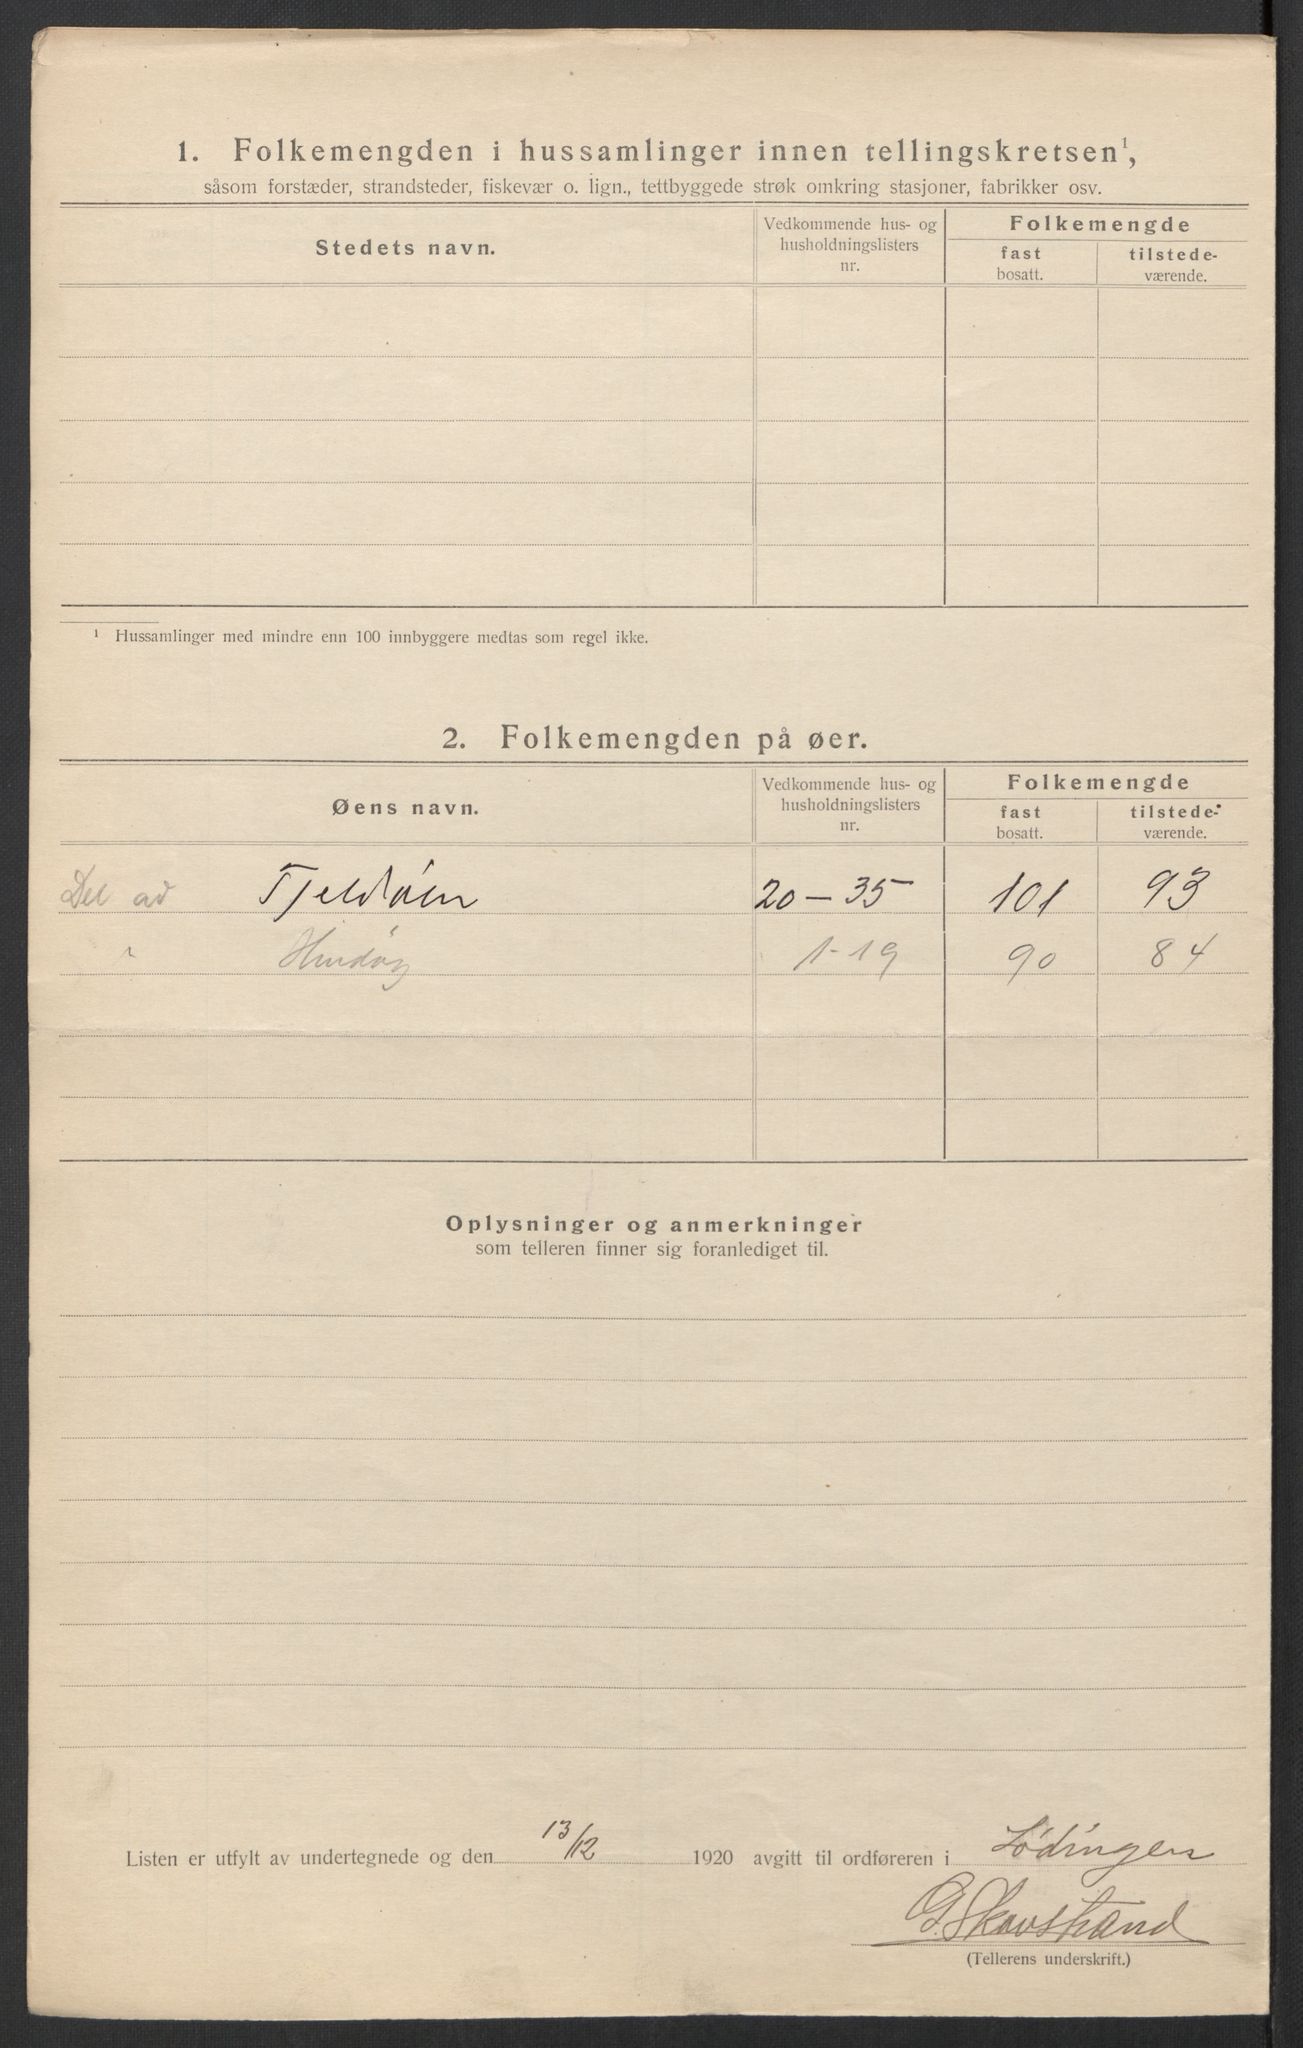 1. Folkemengden i hussamlinger innen tellingskretsen¹,
såsom forstæder, strandsteder, fiskevær o. lign., tettbyggede strøk omkring stasjoner, fabrikker osv.
Stedets navn.
Vedkommende hus- og
husholdningslisters
nr.
Folkemengde
fast
bosatt.
tilstede-
værende.
¹ Hussamlinger med mindre enn 100 innbyggere medtas som regel ikke.
2. Folkemengden på øer.
Øens navn.
Vedkommende hus- og
husholdningslisters
nr.
Folkemengde
fast
bosatt.
tilstede-
værende.
Del av Tjeldöen 20 – 35 101 93
" Hindöy 1-19 90 84
Oplysninger og anmerkninger
som telleren finner sig foranlediget til.
Listen er utfylt av undertegnede og den 13/12 1920 avgitt til ordføreren i Lödingen
G. Skovstrand
(Tellerens underskrift.)